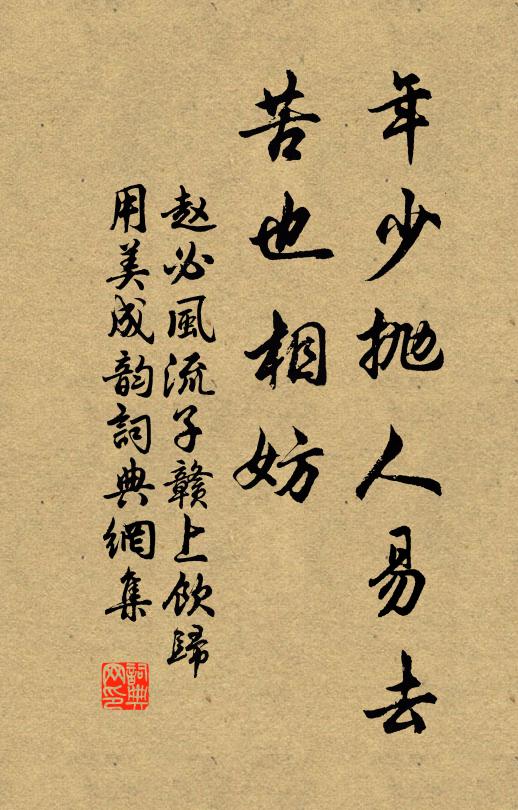 年少抛人易去
苦也相妨
赵必風流子赣上飲歸
用美成韵詞典網集
詞典网印